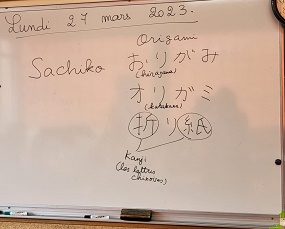 Lundi 27 mars 2023.
Origami
Sachiko
おりがみ
(hiragana)
オリガミ
(katakana)
折り紙
Kanji
(les lettres
chinoises)